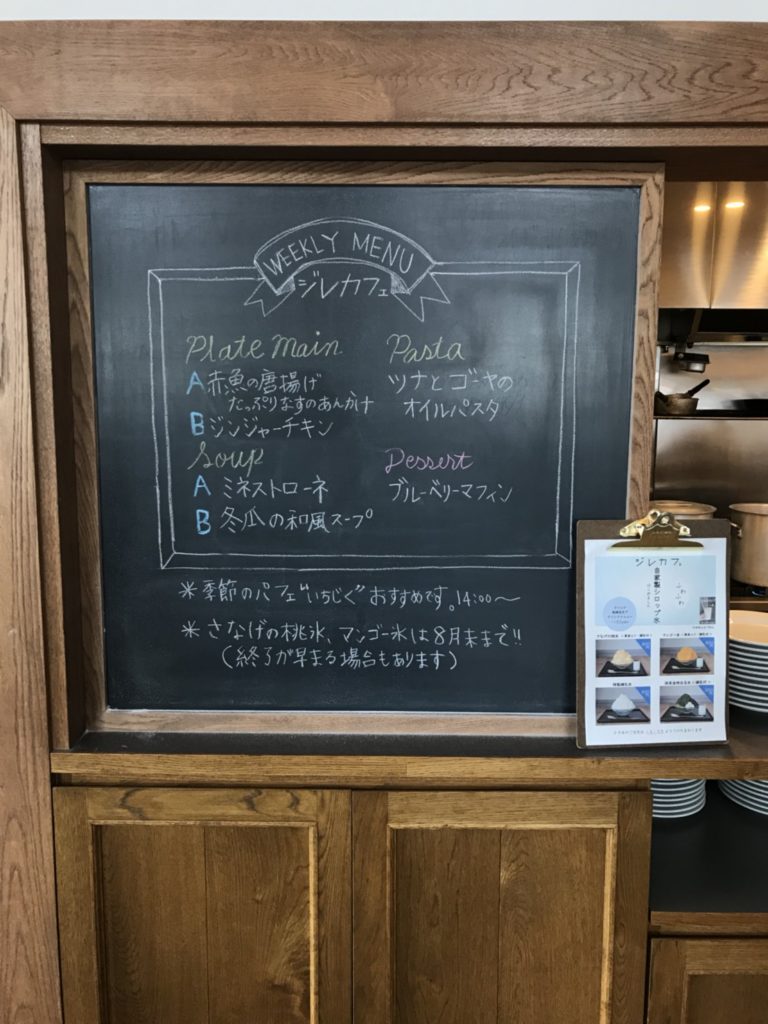 WEEKLY MENU
ジレカフェ
Plate Main
A 赤魚の唐揚げ
たっぷりなすのあんかけ
B ジンジャーチキン
Soup
A ミネストローネ
B 冬瓜の和風スープ
Pasta
ツナとゴーヤの
オイルパスタ
Dessert
ブルーベリーマフィン
*季節のパフェ"いちじく"おすすめです。14:00〜
*さなげの桃氷、マンゴー氷は8月末まで!!
(終了が早まる場合もあります)
ジレカフェ
自家製シロップ氷
ふわふわ